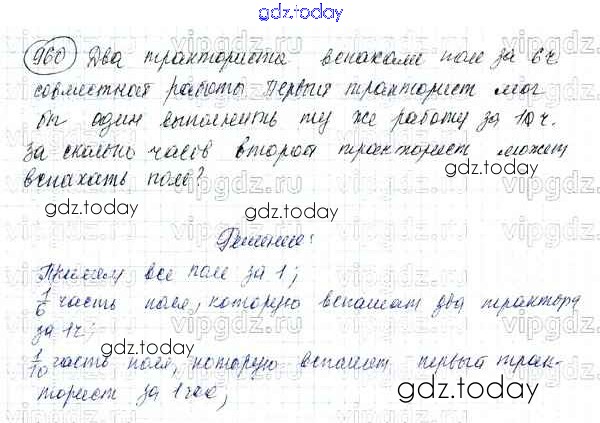 gdz.today
960 Два тракториста вспахали поле за 6ч
совместной работы. Первый тракторист мог
бы один выполнить ту же работу за 10ч.
За сколько часов второй тракторист может
вспахать поле?
gdz.today
gdz.today
Решение:
Примем все поле за 1;
1/6 часть поля, которую вспашат два трактора
за 1ч;
gdz.today
1/10 часть поля, которую вспашет первый трак-
торист за 1 час;
gdz.today